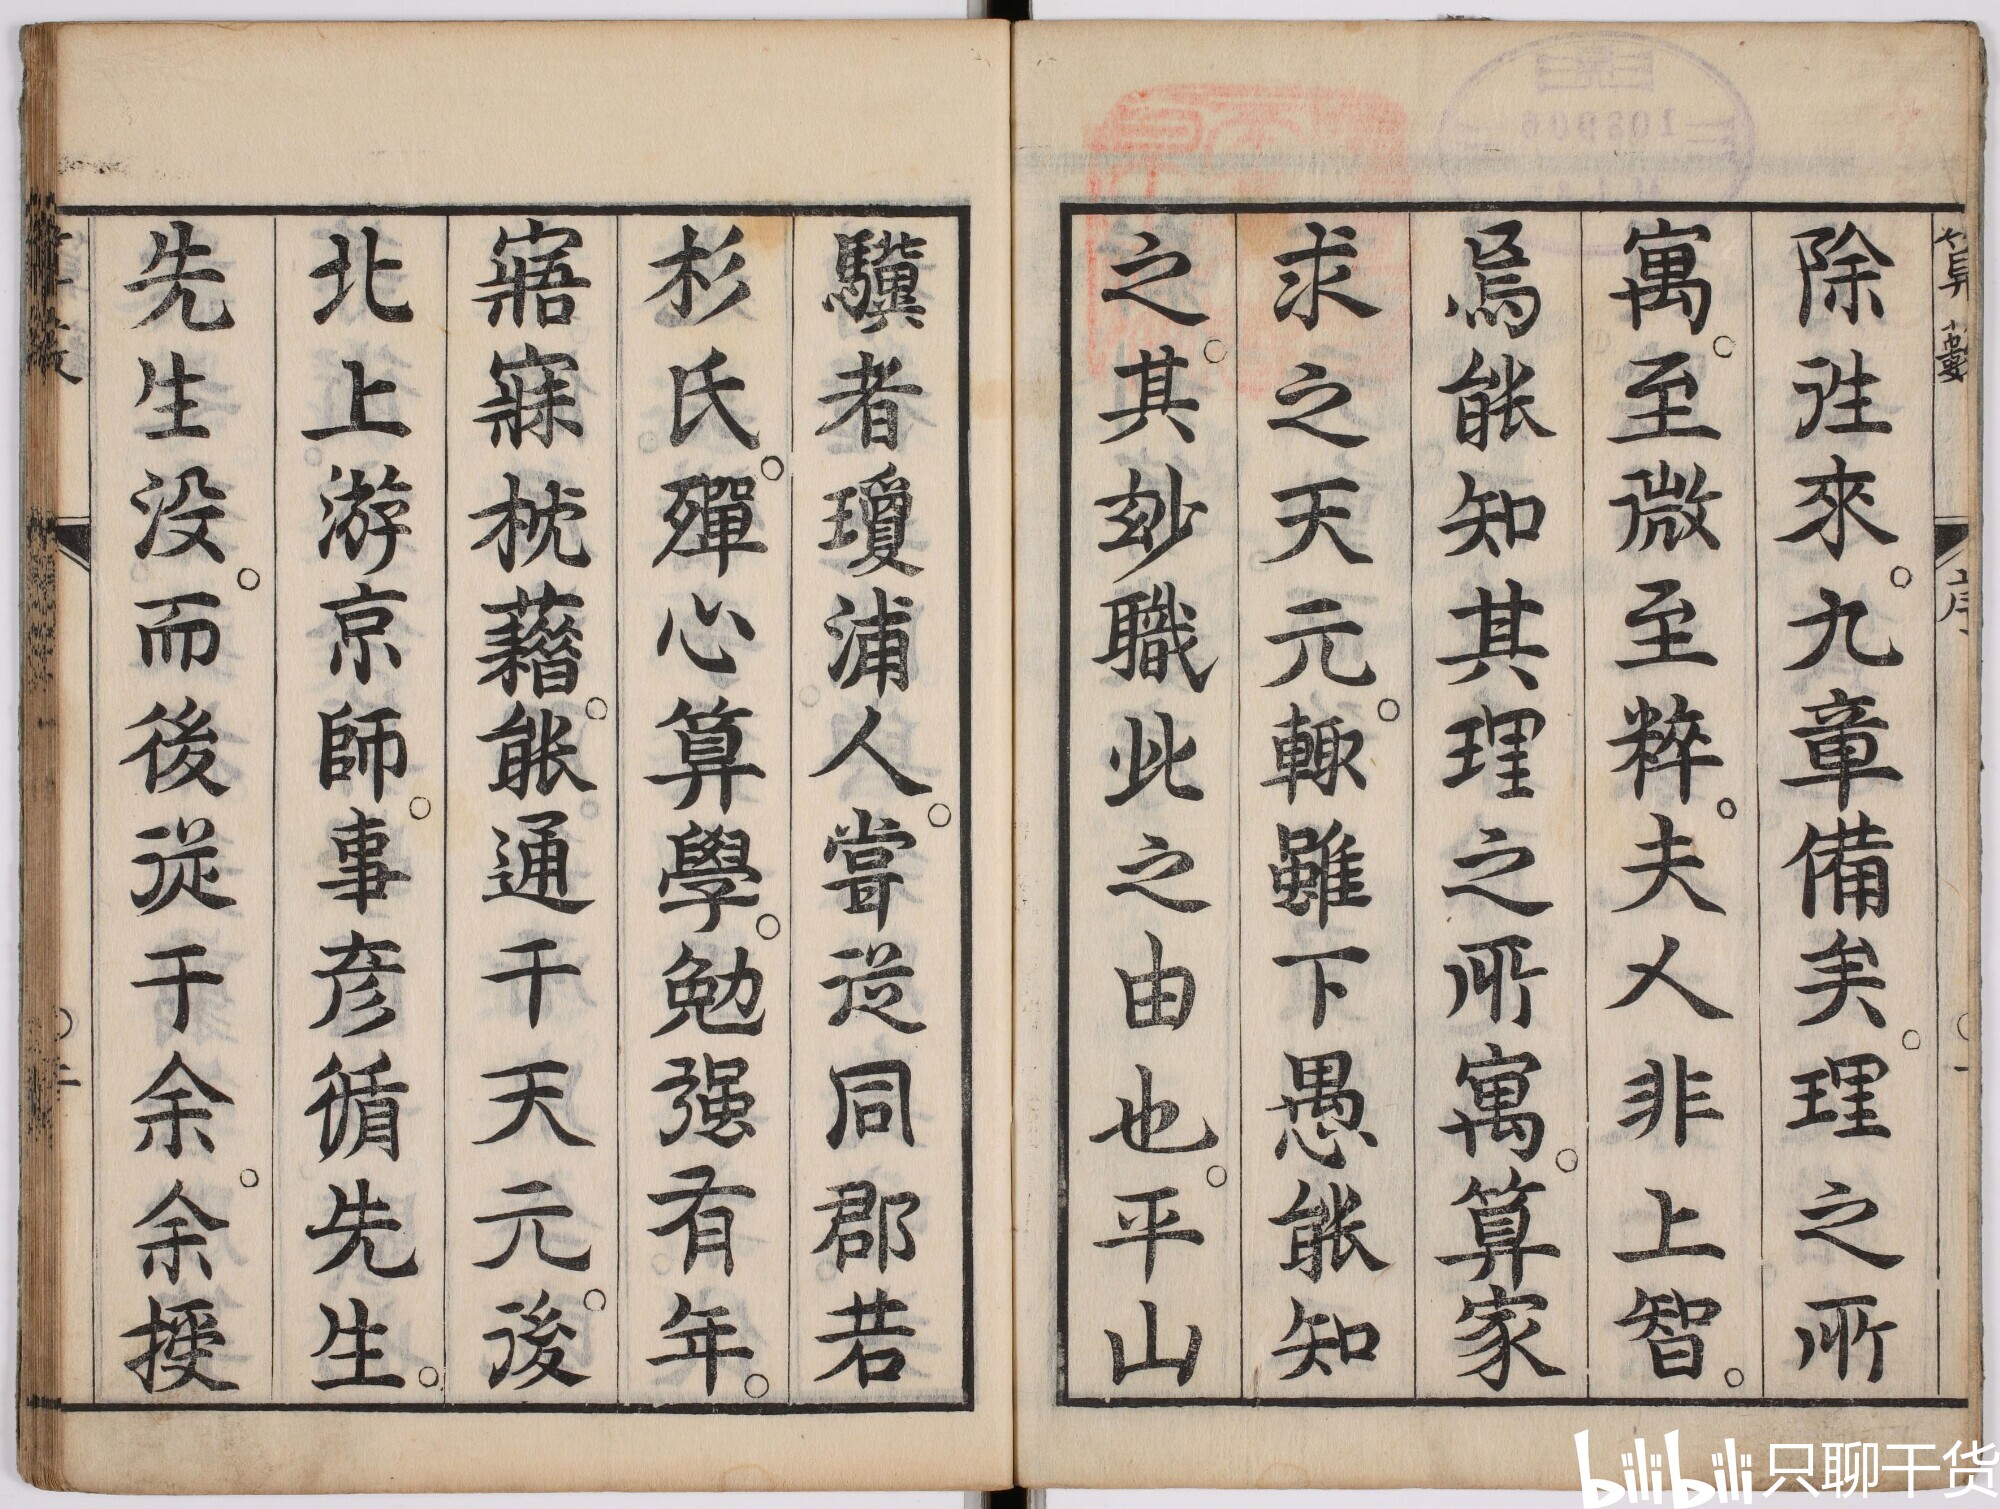 算藁
序
一
除往來。九章備矣。理之所
寓。至微至粹。夫人非上智。
焉能知其理之所寓。算家
求之天元。輙雖下愚能知
之。其玅職此之由也。平山
驥者瓊浦人。嘗從同郡若
杉氏。殫心算學。勉强有年。
寤寐枕藉。能通千天元。後
北上游京師。事彥循先生。
先生没。而後從于余。余授
二
108906
bilibili 只聊干货